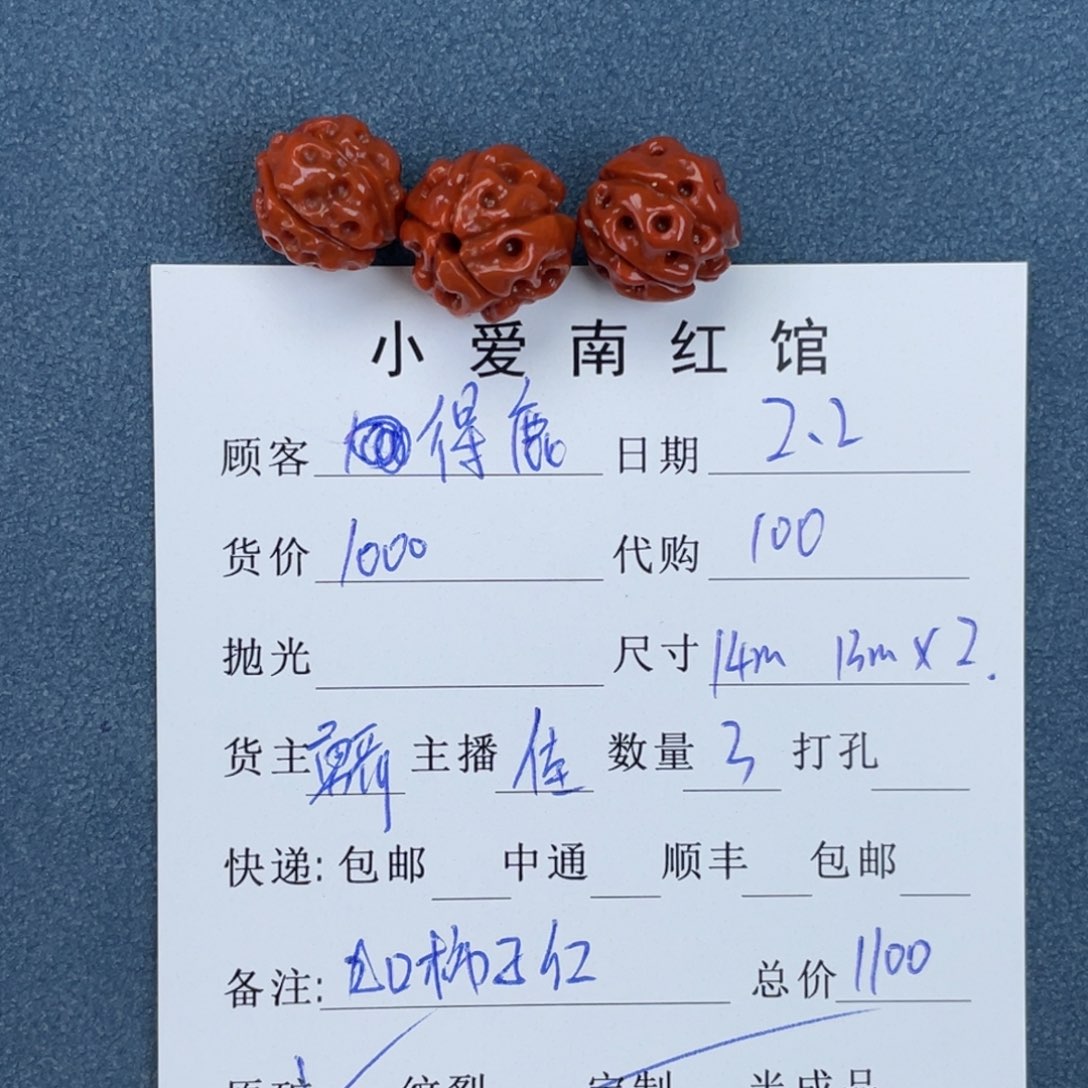 小爱南红馆
顾客 得鹿 日期 2、2
货价 1000 代购 100
抛光 尺寸 14m 13m×2.
货主 主播 佳 数量 3 打孔
快递: 包邮 中通 顺丰 包邮
备注: 柿子红 总价 1100
原矿 绞裂 定制 半成品